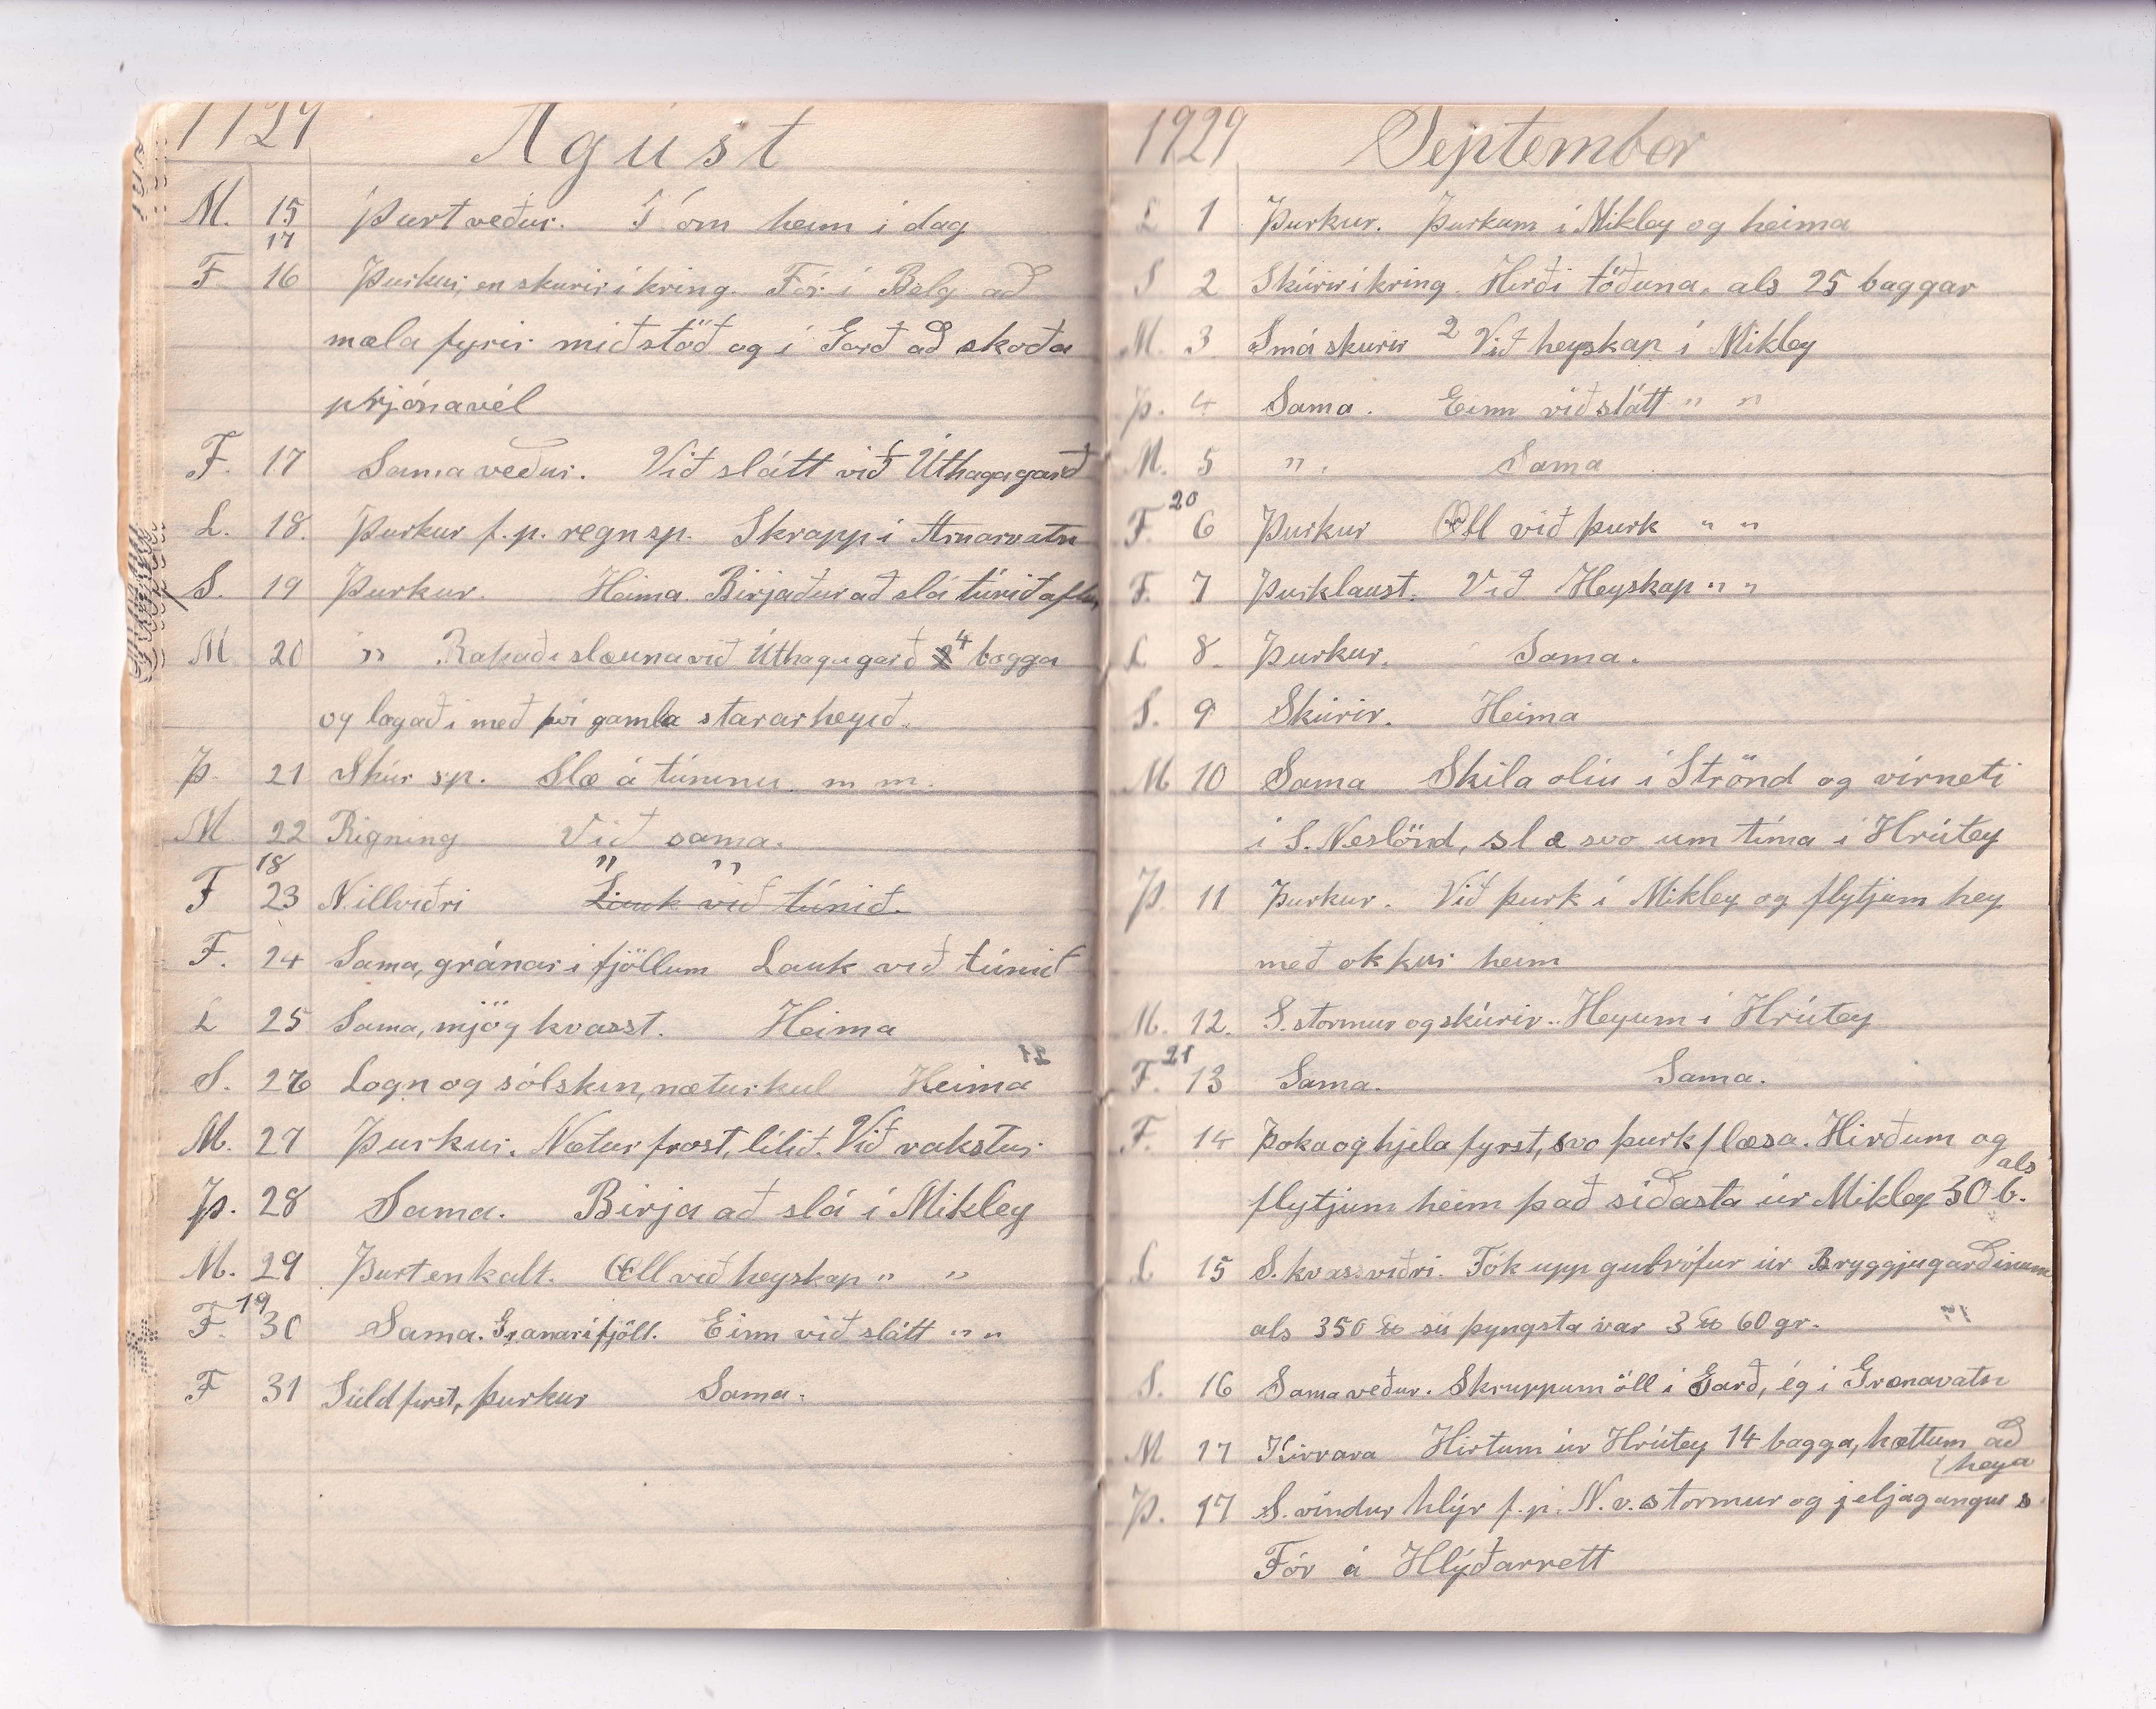 1929 Ágúst
M. 15 Þurt veður. Í óm heim í dag
17
F 16 Þurkur, en skurir í kring. Fór í Belg að
mæla fyrir miðstöð og í Garð að skoða
prjónavél
F. 17 Sama veður. Við slátt við Úthagagarð
L. 18. Þurkur f.p. regn sp. Skrapp í Arnarvatn
S. 19 Þurkur. Heima. Birjaður að slá túnið aftur
M 20 " Rakaði slæuna við Úthagagarð 4 bagga
og lagaði með því gamla stararheyið.
Þ. 21 Skúr sp. Slæ á túninu m m.
M 22 Rigning Við sama.
18 " "
F 23 N.illviðri Lauk við túnið.
F. 24 Sama, gránar í fjöllum Lauk við túnið
L 25 Sama, mjög kvasst. Heima
S. 26 Logn og sólskin, næturkul Heima
M. 27 Þurkur. Nætur frost, lítið. Við rakstur
Þ. 28 Sama. Birja að slá í Mikley
M. 29 Þurt en kalt. Öll við heyskap " "
19
F. 30 Sama. Gránar í fjöll. Einn við slátt " "
F 31 Súld first, þurkur Sama.
1929 September
L 1 Þurkur. Þurkum í Mikley og heima
S 2 Skúrir í kring. Hirði töðuna, als 25 baggar
M. 3 Smá skurir 2 Við heyskap í Mikley
Þ. 4 Sama. Einn við slátt " "
M. 5 " . Sama
20
F. 6 Þurkur Öll við þurk " "
F. 7 Þurklaust. Við Heyskap " "
L 8. Þurkur. Sama.
S. 9 Skúrir. Heima
M 10 Sama Skila olíu í Strönd og vírneti
í S. Neslönd, slæ svo um tíma í Hrútey
Þ. 11 Þurkur. Við þurk í Mikley og flytjum hey
með okkur heim
M. 12. S. stormur og skúrir.. Heyum í Hrútey
21
F. 13 Sama. Sama.
F. 14 Þoka og hjela fyrst, svo þurkflæsa. Hirðum og
als
flytjum heim það síðasta úr Mikley 30 b.
L 15 S. kvassviðri. Tók upp gulrófur úr Bryggjugarðinum
als 350 ℔ sú þyngsta var 3 ℔ 60 gr.
S. 16 Sama veður. Skruppum öll í Garð, ég í Grænavatn
M 17 Kirrara Hirtum úr Hrútey 14 bagga, hættum að
(heya
Þ. 17 S. vindur hlýr f.p. N.v. stormur og jeljagangur s
Fór á Hlýðarrett